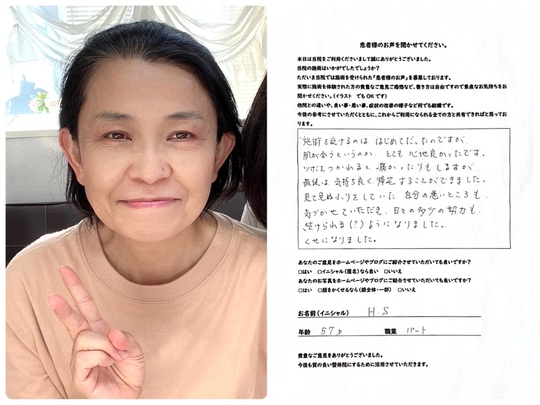 患者様のお声を聞かせてください。
本日は当院をご利用くださいまして誠にありがとうございました。
当院の施術はいかがでしたでしょうか?
ただいま当院では施術を受けられた『患者様のお声』を募集しております。
実際に施術を体験された方の貴重なご意見ご感想など、書き方は自由ですので素直なお気持ちをお
聞かせください。(イラスト でもOKです)
他院との違いや、良い事・悪い事、症状の改善の様子など何でも結構です。
今後の参考にさせていただくとともに、これからご利用になられる全ての方と共有できればと思ってお
ります。
施術を受けるのは はじめてだったのですが、
肌が合うというのか、とても心地良かったです。
ツボをつかれると、痛かったりもしますが
最後は気持ち良く、帰宅することができました。
見て見ぬふりをしていた 自分の悪いところも
気づかせていただき、日々の多少の努力も
続けられる(?)ようになりました。
くせになりました。
あなたのご意見をホームページやブログにご紹介させていただいても良いですか?
○はい ○イニシャル(匿名)なら良い ○いいえ
あなたのお写真をホームページやブログにご紹介させていただいても良いですか?
○はい ○顔をかくせるなら(顔全体・一部) ○いいえ
お名前(イニシャル) H.S
年齢 57才 職業 パート
貴重なご意見をありがとうございました。
今後も質の良い整体院にするために活用させていただきます。